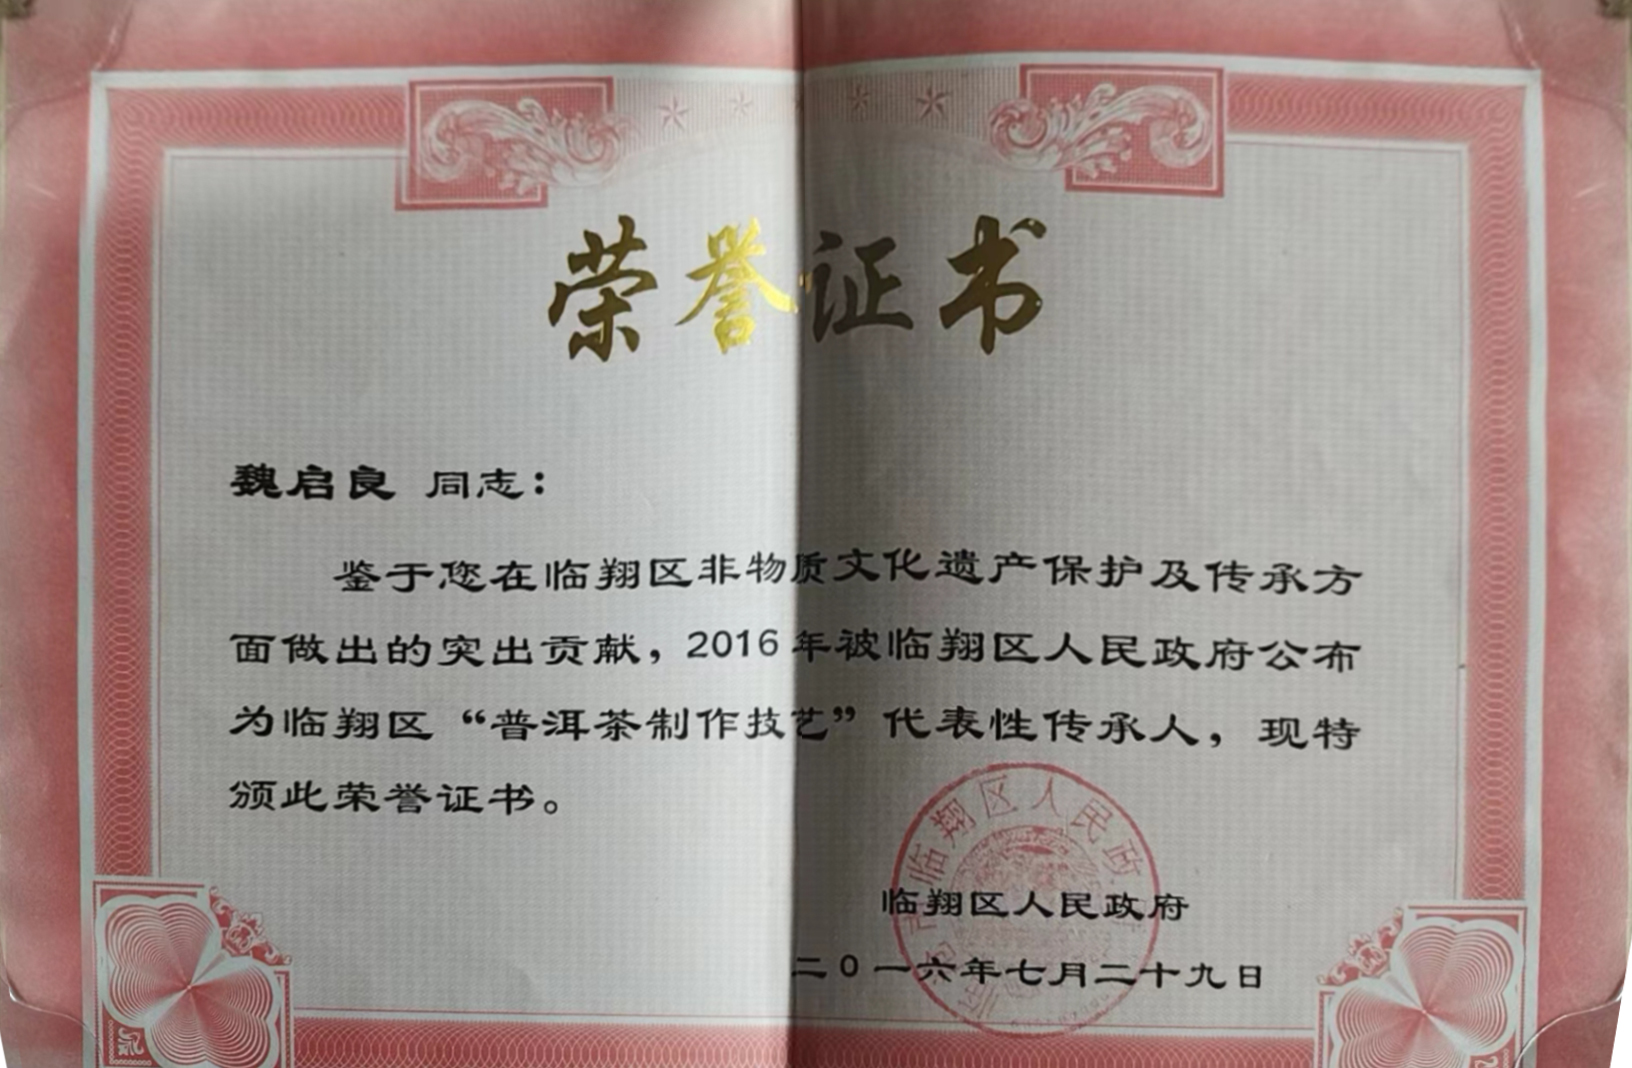 荣誉证书
魏启良 同志：
鉴于您在临翔区非物质文化遗产保护及传承方
面做出的突出贡献，2016年被临翔区人民政府公布
为临翔区“普洱茶制作技艺”代表性传承人，现特
颁此荣誉证书。
临翔区人民政
临翔区人民政府
二0一六年七月二十九日